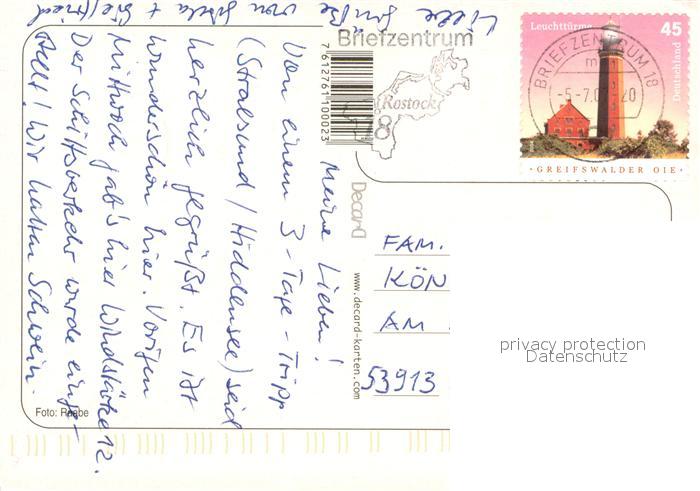 Meine Lieben!
Von einem 3-Tage-Tripp
(Stralsund/Hiddensee) seid
herzlich gegrüßt. Es ist
wunderschön hier. Vorigen
Mittwoch gab's hier Windstärke 12.
Der Schiffsverkehr wurde einge-
stellt! Wir hatten Schwein.
Liebe Grüße von + Siegfried
Briefzentrum
Rostock
18
7612761100023
Leuchttürme
45
Deutschland
BRIEFZENTRUM 18
·GREIFSWALDER OIE·
Decard
www.decard-karten.com
FAM.
KÖN
AM
53913
privacy protection
Datenschutz
Foto: Raabe